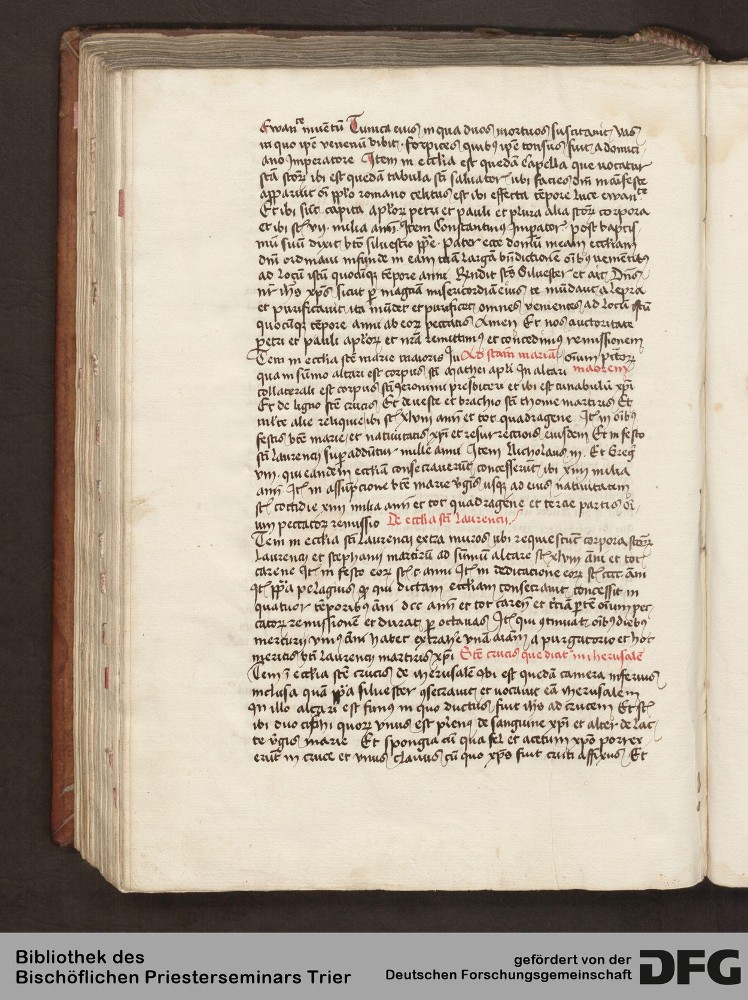 Ewan^te^ inuētū Tunica eius in qua duos mortuos suscitauit vas
in quo ip̄e venenū bibit forpices quibus ip̄e tonsus fuit a domici
ano Imperatore Item in eccl̄ia est quedā Capella que vocatur
sctā sctōꝝ ibi est quedā tabula sct̄i saluatoꝝ vbi facies dn̄i māifeste
apparuit oī pp̄lo romano celitus est ibi effecta tēpore luce ewan^te^
Et ibi sūt capita ap̄loꝝ petri et pauli et plura alia sctōꝝ corpora
et ibi st̄ vij milia annī Item Constantinus Impator post baptis
mū suū dixit bt̄o siluestro pp̄e Pater ecce domū meam eccl̄iam
dn̄i ordinaui infunde in eam tuā largā bn̄dictione oībus venientibus
ad locū istū quocūqꝫ tēpore anni Rn̄dit sct̄s Siluester et ait Dn̄s
nr̄ ih̄s xp̄s sicut ꝑ magnā misericordiā eius te mūdauit a lepra
et purificauit ita mūdet et purificet omnes venientes ad locū istū
quocūqꝫ tēpore anni ab eoꝝ peccatis Amen Et nos auctoritate
petri et pauli ap̄loꝝ et nr̄a remittimus et concedimus remissionem
Tem in eccl̄ia sct̄e marie maioris In Ad sctam mariā oīum pctōꝝ
qua in sūmo altari est corpus sct̄i mathei ap̄li In altari maorem
collaterali est corpus sct̄i Jeronimi presbiteri et ibi est cunabulū xp̄i
Et de ligno sct̄e crucis Et de veste et brachio sct̄i thome martiris Et
ml̄te alie reliquie ibi st̄ xlviij annī et tot quadragene It̄m in oībus
festis bt̄e marie et natiuitatis xp̄i et resurrectionis eiusdem Et in festo
sct̄i laurencij supadduntur mille anni Item Nicholaus iij Et Greg
viij qui eandem eccl̄iam consecrauerūt concesserūt ibi xiiij milia
annī It̄m in assūpcione bt̄e marie v̄gis vsqꝫ ad eius natiuitatem
st̄ cottidie xiiij milia annī et tot quadragene et tercie partis oī
um peccatoꝝ remissio De eccl̄ia sct̄i laurencij
Tem in eccl̄ia sct̄i laurencij extra muros vbi requiescūt corpora sctōꝝ
laurencij et stephani martirū ad sūmū altare st̄ xlviij ān̄i et tot
carene It̄m in festo eoꝝ st̄ c anni It̄m in dedicatione eoꝝ st̄ cccc ān̄i
It̄ pp̄a pelagius qui dictam eccl̄iam consecrauit concessit in
quatuor tēporibus ān̄i dcc annī et tot caren̄ et tēiā ptē oīum pec
catoꝝ remissionē et durat ꝑ octauas It̄ qui ꝯtinuat oībus diebus
mercurij vnius ān̄i habet extrahe vnā aīam a purgatorio et hoc
meritis bt̄i laurencij martiris xp̄i Sct̄e crucis que dicit̄ in iherusalē
Tem ī eccl̄ia sct̄e crucis de iherusalē vbi est quedā camera inferius
inclusa quā pp̄a siluester ꝯsecrauit et vocauit eā iherusalem
In illo altari est funis in quo ductus fuit ih̄s ad crucem Et st̄
ibi duo ciphi quoꝝ vnus est plenus de sanguine xp̄i et alter de lac
te v̄gis marie Et spongia cū qua fel et acetum xp̄o porrex
erūt in cruce et vnus clauus cū quo xp̄s fuit cruci affixus Et
Bibliothek des
Bischöflichen Priesterseminars Trier
gefördert von der
Deutschen Forschungsgemeinschaft
DFG